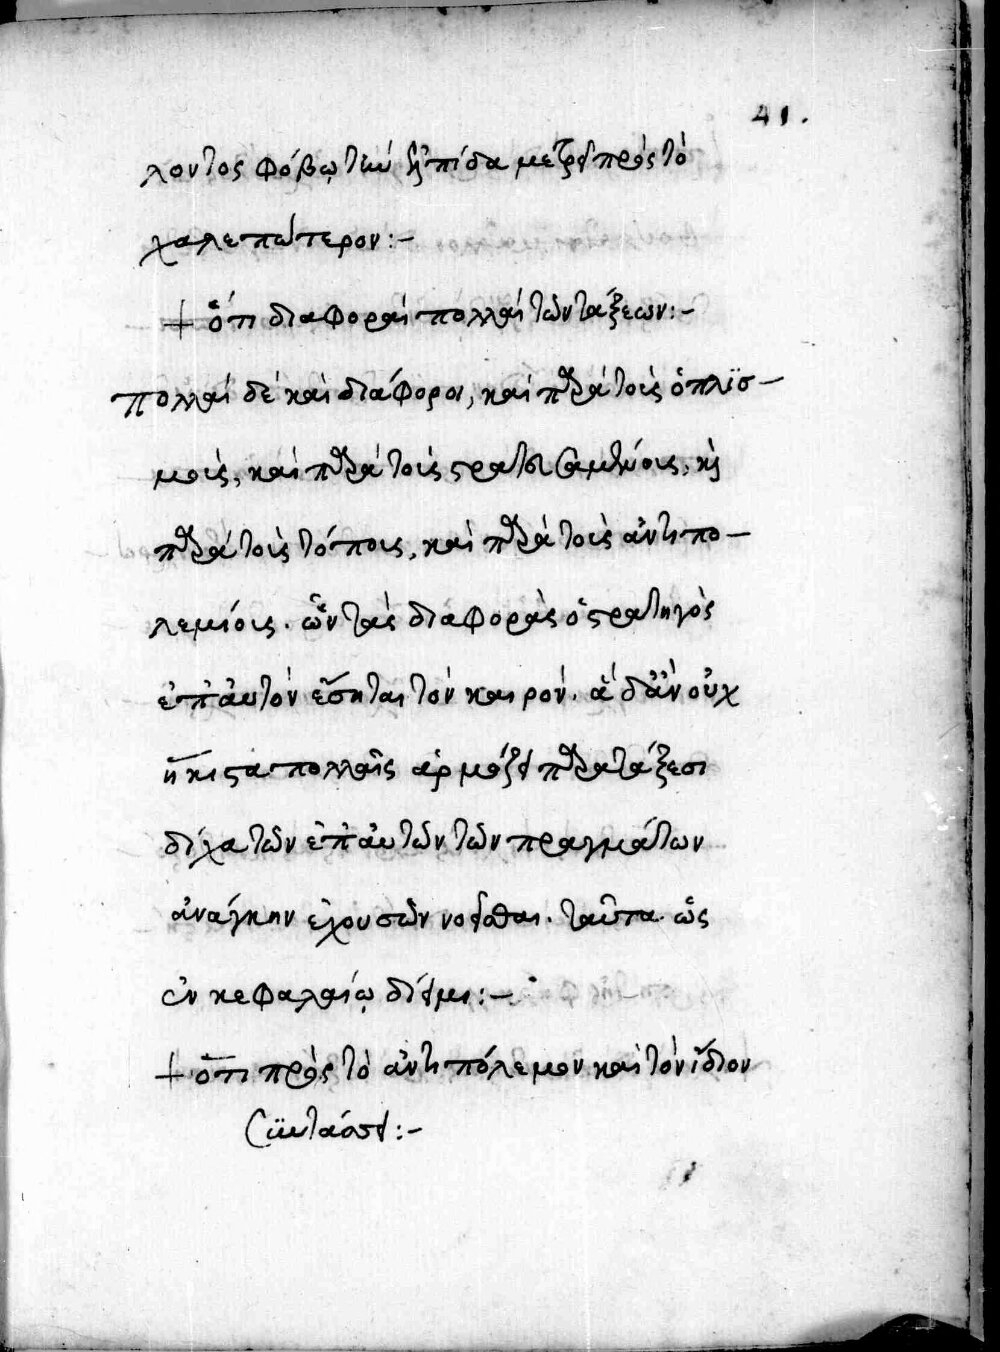 41.
λοντος φόβῳ τὴν ἐλπίδα μετρεῖ πρὸς τὸ
χαλεπώτερον:-
+ ὅτι διαφοραὶ πολλαὶ τῶν τάξεων:-
πολλαὶ δὲ καὶ διάφοροι, καὶ παρὰ τοῖς ὁπλϊσ-
μοῖς, καὶ παρὰ τοῖς στρατευομένοις, καὶ
παρὰ τοῖς τόποις, καὶ παρὰ τοῖς ἀντιπο-
λεμίοις. ὧν τὰς διαφορὰς ὁ στρατηγὸς
ἐπ' αὐτὸν εἴσηται τὸν καιρόν. ἃ δ' ἂν οὐχ
ἥκιστα πολλαῖς ἁρμόζει παρατάξεσι
δίχα τῶν ἐπ' αὐτῶν τῶν πραγμάτων
ἀνάγκην ἐχουσῶν νοεῖσθαι. ταῦτα ὡς
ἐν κεφαλαίῳ δίειμι:-
+ ὅτι πρὸς τὸ ἀντιπόλεμον καὶ τὸν ἴδιον